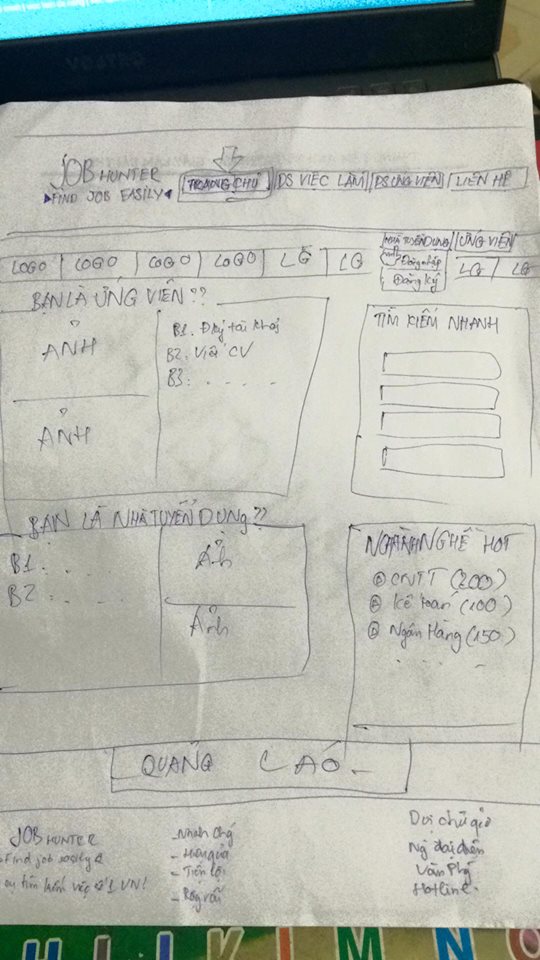 JOB HUNTER
FIND JOB EASILY
TRANG CHỦ DS VIỆC LÀM DS ỨNG VIÊN LIÊN HỆ
NHÀ TUYỂN DỤNG ỨNG VIÊN
Đăng nhập
Đăng ký
LOGO LOGO LOGO LOGO LG LG LG LG
BẠN LÀ ỨNG VIÊN ??
ẢNH
ẢNH
B1. Đký tài khoản
B2. Viết CV
B3: . . . . .
TÌM KIẾM NHANH
BẠN LÀ NHÀ TUYỂN DỤNG ??
B1: . . .
B2 . . .
Ảnh
Ảnh
NGÀNH NGHỀ HOT
CNTT (200)
Kế toán (100)
Ngân Hàng (150)
. . . . .
QUẢNG CÁO
JOB HUNTER
Find job easily
tìm kiếm việc số 1 VN!
- Nhanh chóng
- Hiệu quả
- Tiện lợi
Địa chỉ
Ng đại diện
Văn Phg
Hotline
H I J K L M N O